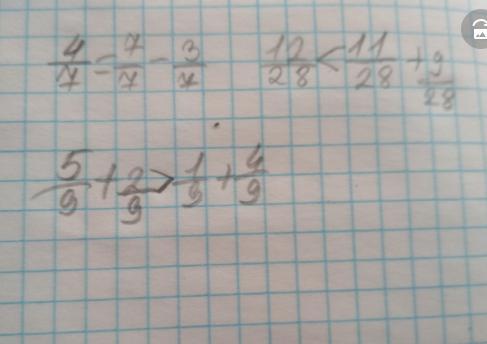 4/7 = 7/7 - 3/7    12/28 < 11/28 + 9/28
5/9 + 2/9 > 1/9 + 4/9